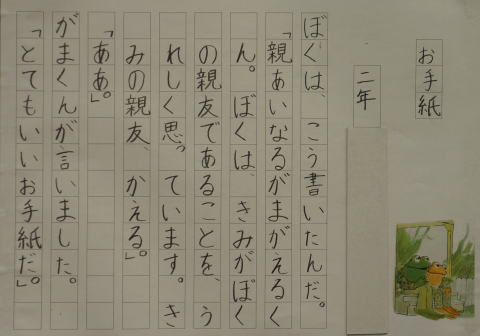 お手紙
二年
ぼくは、こう書いたんだ。
「親あいなるがまがえるく
ん。ぼくは、きみがぼく
の親友であることを、う
れしく思っています。き
みの親友、かえる」。
「ああ」。
がまくんが言いました。
「とてもいいお手紙だ」。